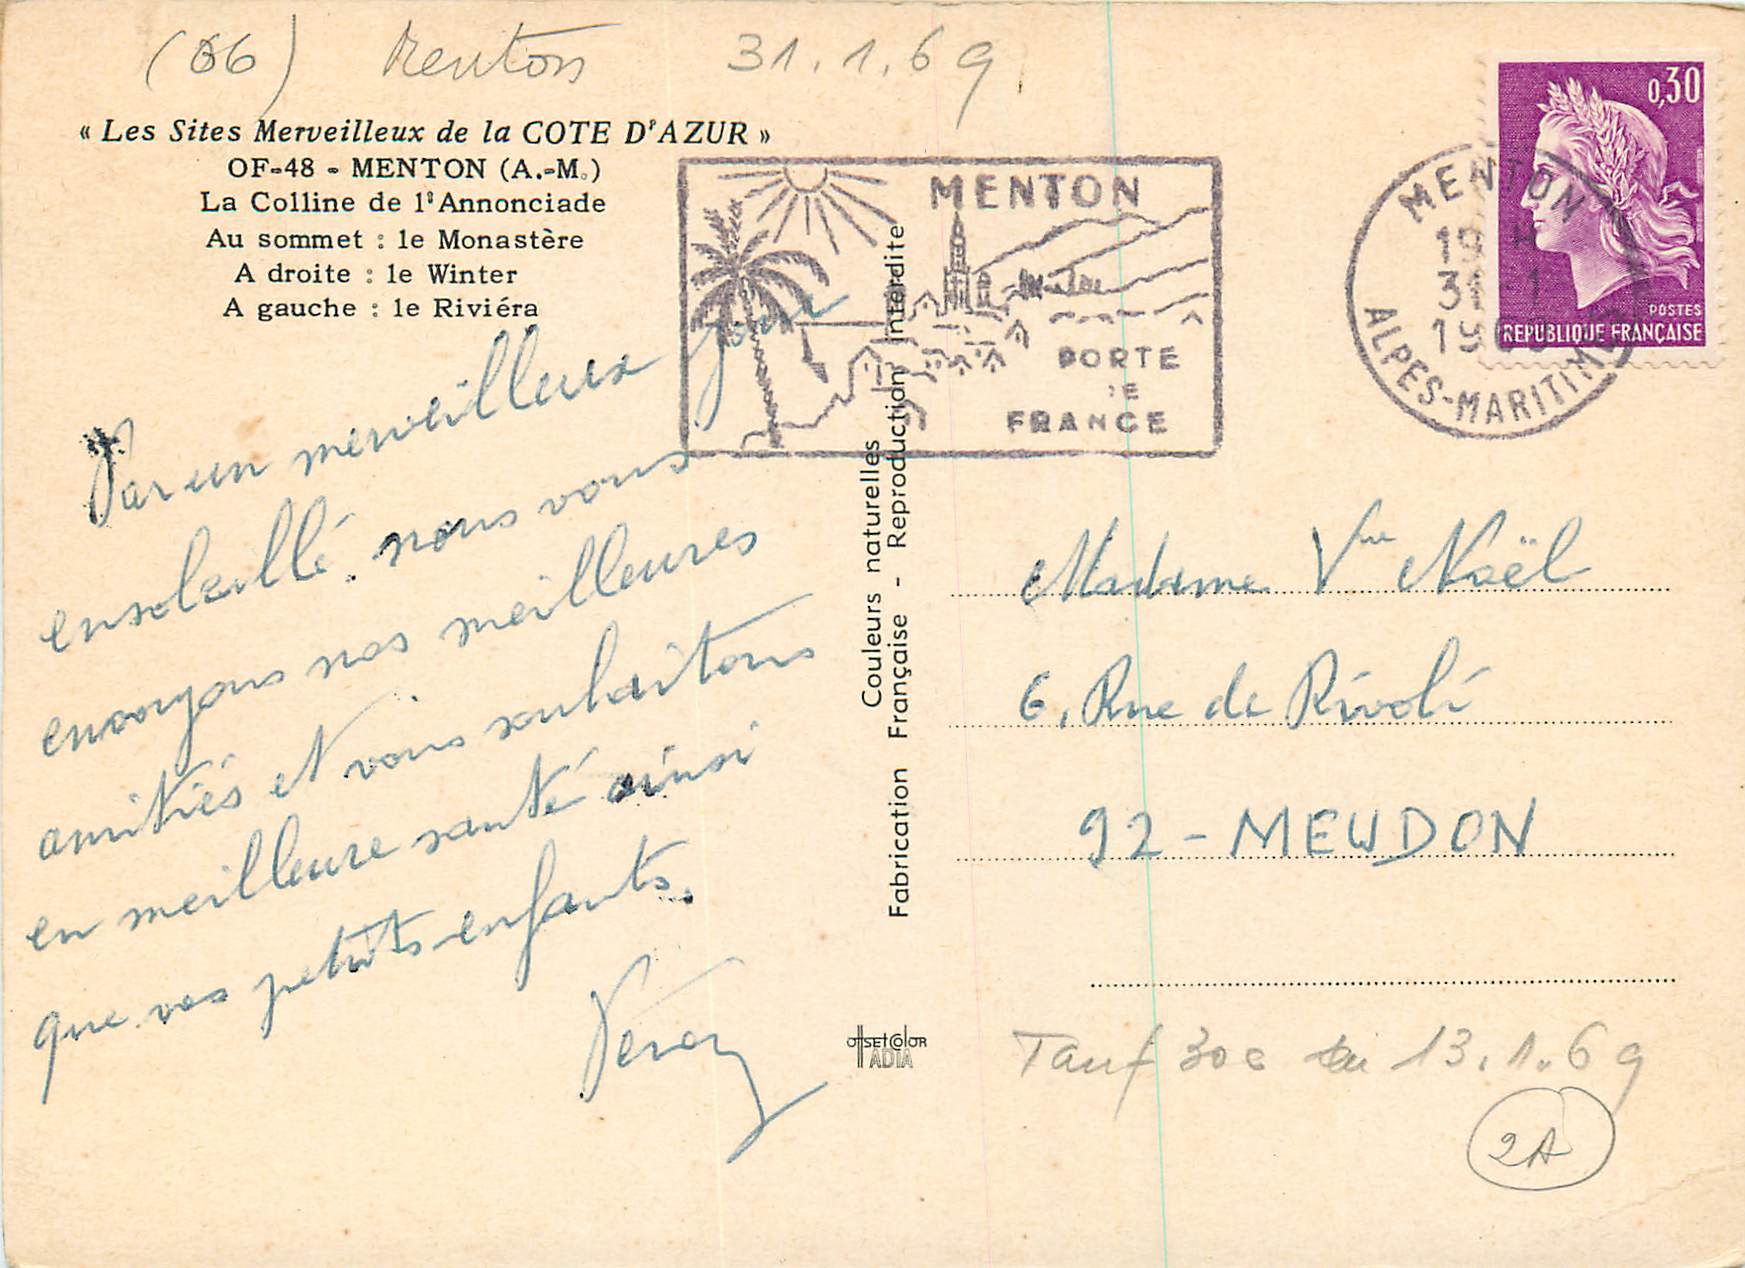 (06) Menton 31.1.69
« Les Sites Merveilleux de la COTE D'AZUR »
OF-48 - MENTON (A.-M.)
La Colline de l'Annonciade
Au sommet : le Monastère
A droite : le Winter
A gauche : le Riviéra
MENTON
PORTE
DE
FRANCE
MENTON
19 H
31-1
1969
ALPES-MARITIMES
0,30
POSTES
REPUBLIQUE FRANÇAISE
Par un merveilleux jour
ensoleillé, nous vous
envoyons nos meilleures
amitiés et vous souhaitons
en meilleure santé ainsi
que vos petits-enfants.
Couleurs naturelles
Fabrication Française - Reproduction Interdite
OffSETCOlOR
ADIA
Madame Vve Noël
6, Rue de Rivoli
92 - MEUDON
Tarif 30c du 13.1.69
2A